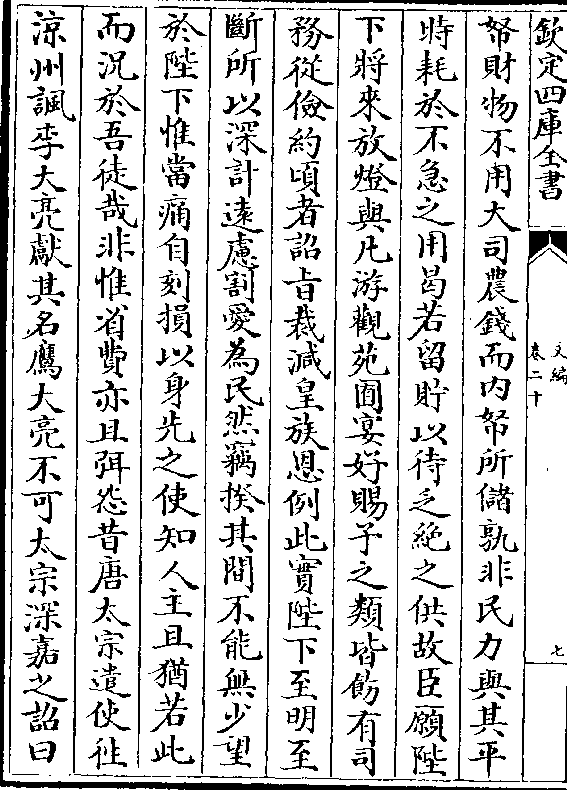 欽定四庫全書
文編
卷二十
七
帑財物不用大司農錢而内帑所儲孰非民力與其平
時耗於不急之用曷若留貯以待乏絶之供故臣願陛
下將來放燈與凡游觀苑囿宴好賜予之類皆飭有司
務從儉約頃者詔旨裁減皇族恩例此實陛下至明至
斷所以深計遠慮割愛為民然竊揆其間不能無少望
於陛下惟當痛自刻損以身先之使知人主且猶若此
而況於吾徒哉非惟省費亦且弭怨昔唐太宗遣使往
涼州諷李大亮獻其名鷹大亮不可太宗深嘉之詔曰